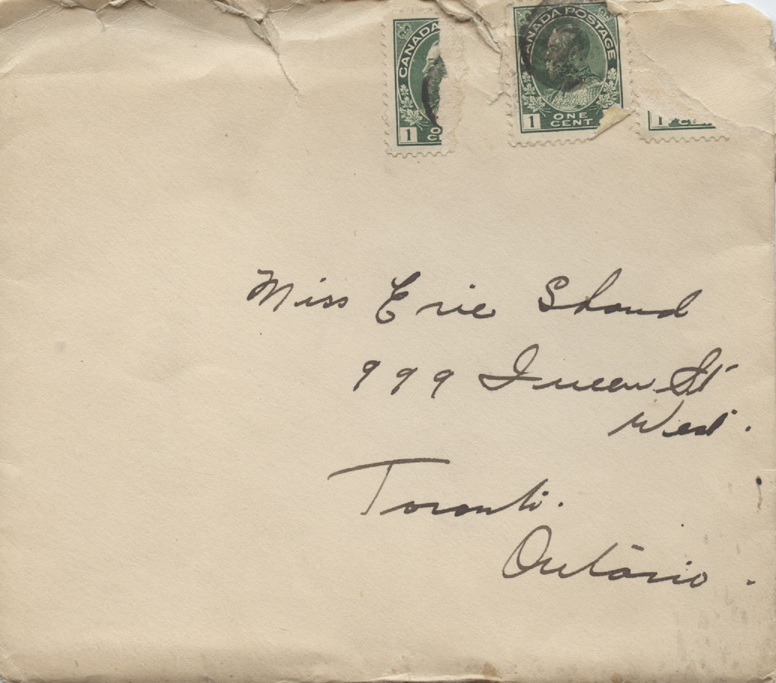 CANADA
1 O
C
CANADA POSTAGE
1 ONE CENT
1
Miss Erie Shand
999 Queen St
West.
Toronto.
Ontario.